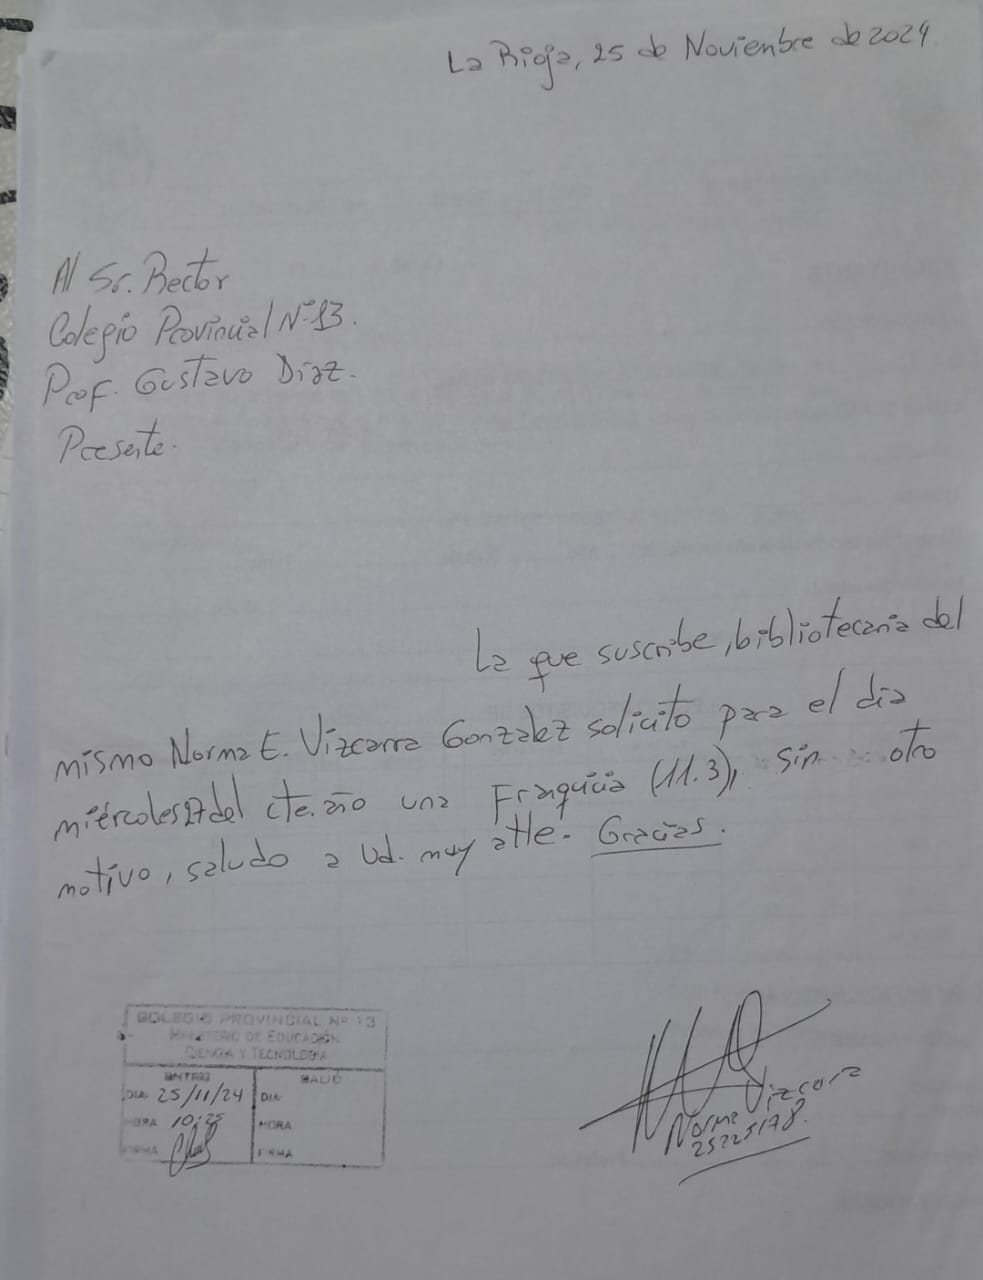 La Rioja, 25 de Noviembre de 2024
Al Sr. Rector
Colegio Provincial Nº 13.
Prof. Gustavo Díaz.
Presente.
La que suscribe, bibliotecaria del
mismo Norma E. Vizcarra Gonzalez solicito para el día
miércoles 27 del cte. año una Franquicia (11.3), sin otro
motivo, saludo a Ud. muy atte. Gracias.
COLEGIO PROVINCIAL Nº 13
MINISTERIO DE EDUCACIÓN
CIENCIA Y TECNOLOGIA
ENTRO SALIO
DIA 25/11/24 DIA
HORA 10:25 HORA
FIRMA FIRMA
Norma Vizcarra
25225178